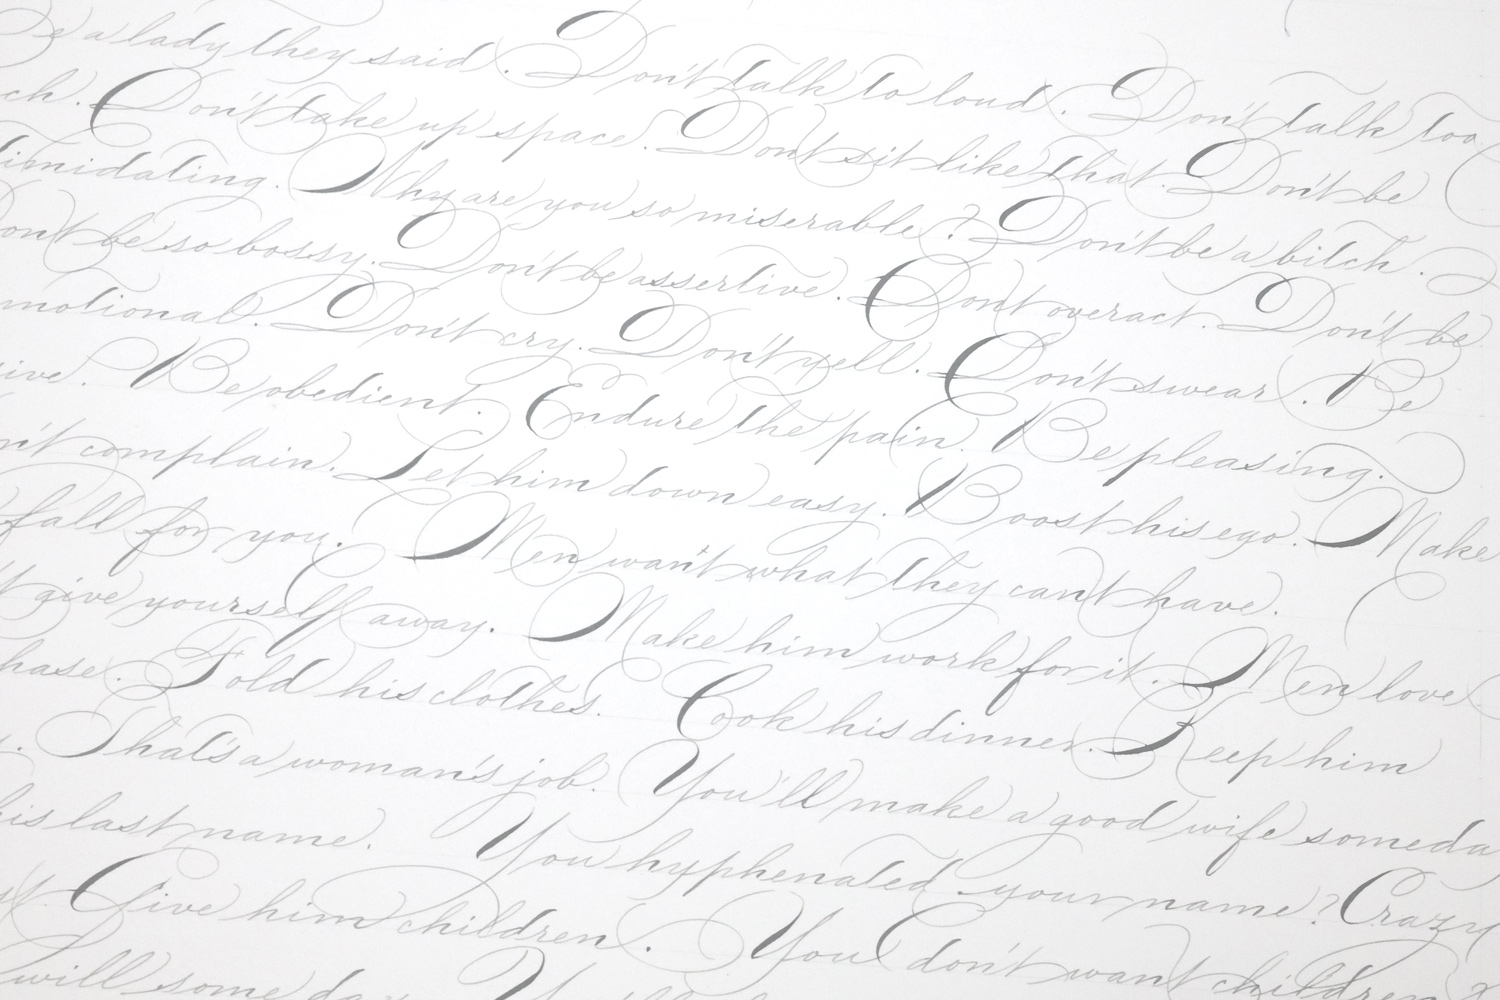 Be a lady they said. Don't talk to loud. Don't talk too
ch. Don't take up space. Dont sit like that. Don't be
timidating. Why are you so miserable? Don't be a bitch.
ont be so bossy. Don't be assertive. Dont overact. Don't be
motional. Don't cry. Don't yell. Don't swear. Be
ive. Be obedient. Endure the pain. Be pleasing.
n't complain. Let him down easy. Boost his ego. Make
fall for you. Men want what they cant have.
't give yourself away. Make him work for it. Men love
hase. Fold his clothes. Cook his dinner. Keep him
. That's a woman's job. You'll make a good wife someda
his last name. You hyphenated your name? Crazy
Give him children. You don't want children?
will some day. You'll